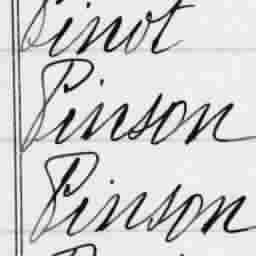 Pinot
Pinson
Pinson